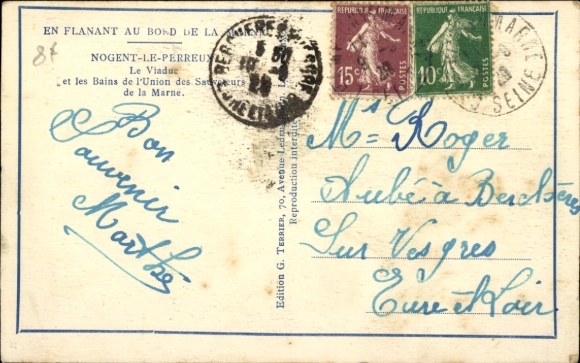 EN FLANANT AU BORD DE LA MARNE
84
NOGENT-LE-PERREUX
Le Viaduc
et les Bains de l'Union des Sauveteurs
de la Marne.
Bon
Souvenir
Marthe
Edition G. TERRIER, 70, Avenue
Reproduction interdite
REPUBLIQUE FRANÇAISE
15c POSTES
REPUBLIQUE FRANÇAISE
10c POSTES
MARNE
SEINE
Mr Roger
Aubé à Berchères
Sur Vesgres
Eure & Loir